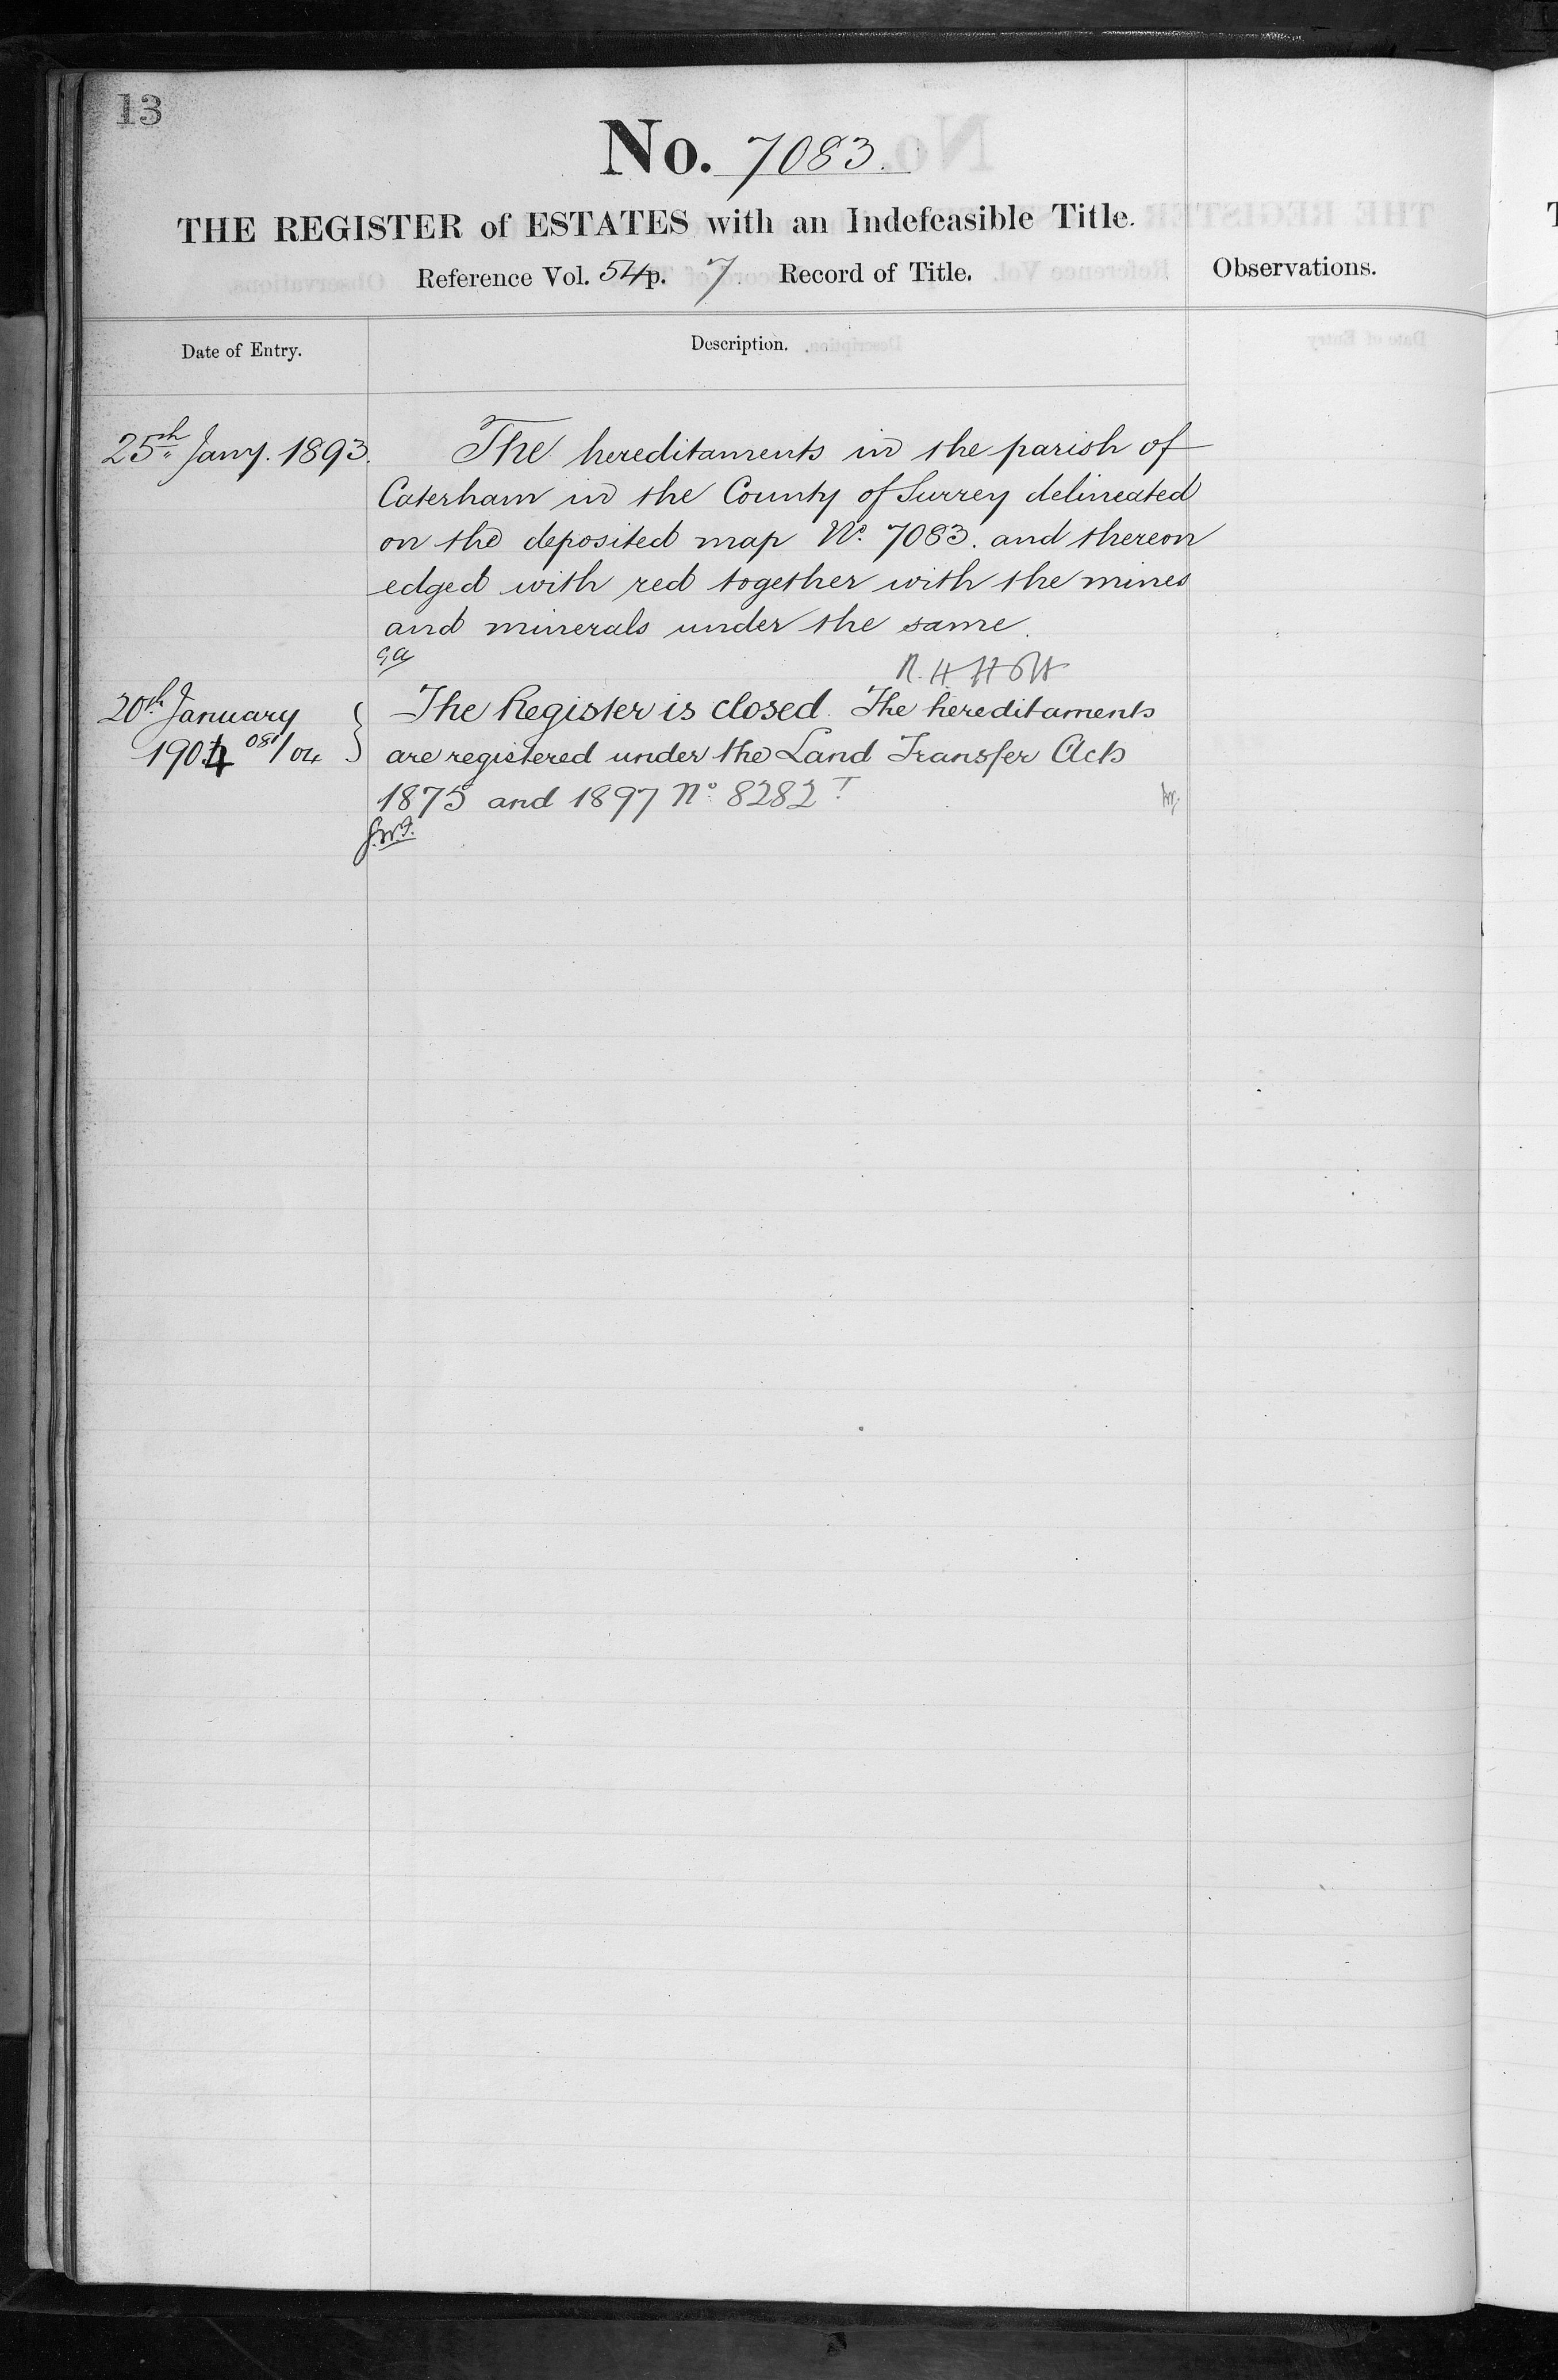 13
No. 7083.
THE REGISTER of ESTATES with an Indefeasible Title.
Reference Vol. 54 p. 7. Record of Title.
Observations.
Date of Entry.
Description.
25th Jany. 1893.
The hereditaments in the parish of
Caterham in the County of Surrey delineated
on the deposited map No. 7083. and thereon
edged with red together with the mines
and minerals under the same.
20th January
1904 081/04
The Register is closed. The hereditaments
are registered under the Land Transfer Acts
1875 and 1897 No. 8282 T